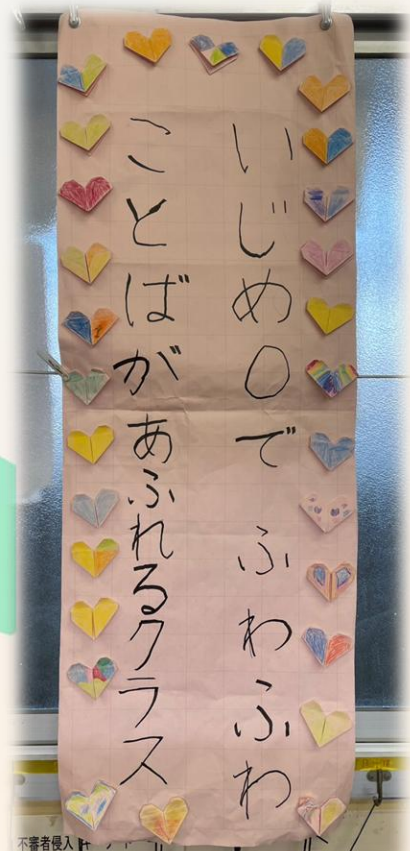 いじめ0で ふわふわ
ことばがあふれるクラス
不審者侵入